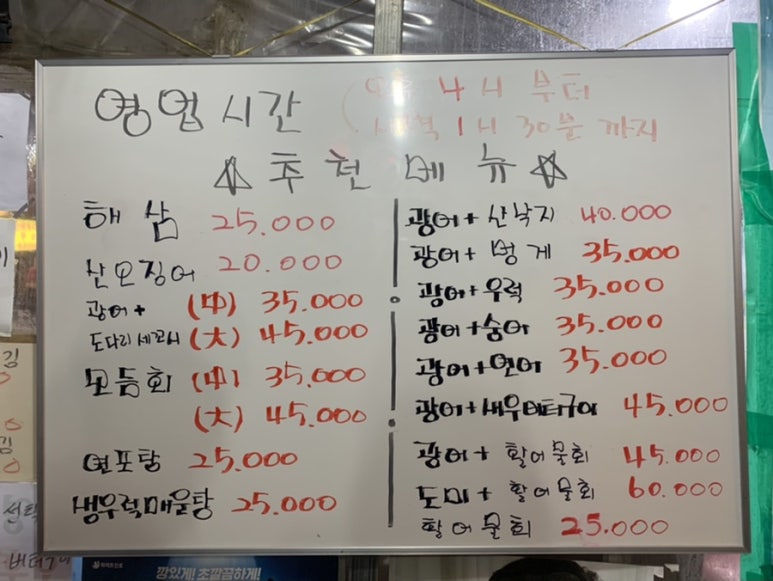 영업시간 (오후 4시 부터
새벽 1시 30분 까지
☆추천메뉴☆
해삼 25.000
산오징어 20.000
광어+ (中) 35.000
도다리세꼬시 (大) 45.000
모듬회 (中) 35.000
(大) 45.000
연포탕 25.000
생우럭매운탕 25.000
광어+산낙지 40.000
광어+멍게 35.000
광어+우럭 35.000
광어+숭어 35.000
광어+연어 35.000
광어+새우버터구이 45.000
광어+활어물회 45.000
도미+활어물회 60.000
활어물회 25.000
김
김
선택
버터구이
깜있게! 초깔끔하게!